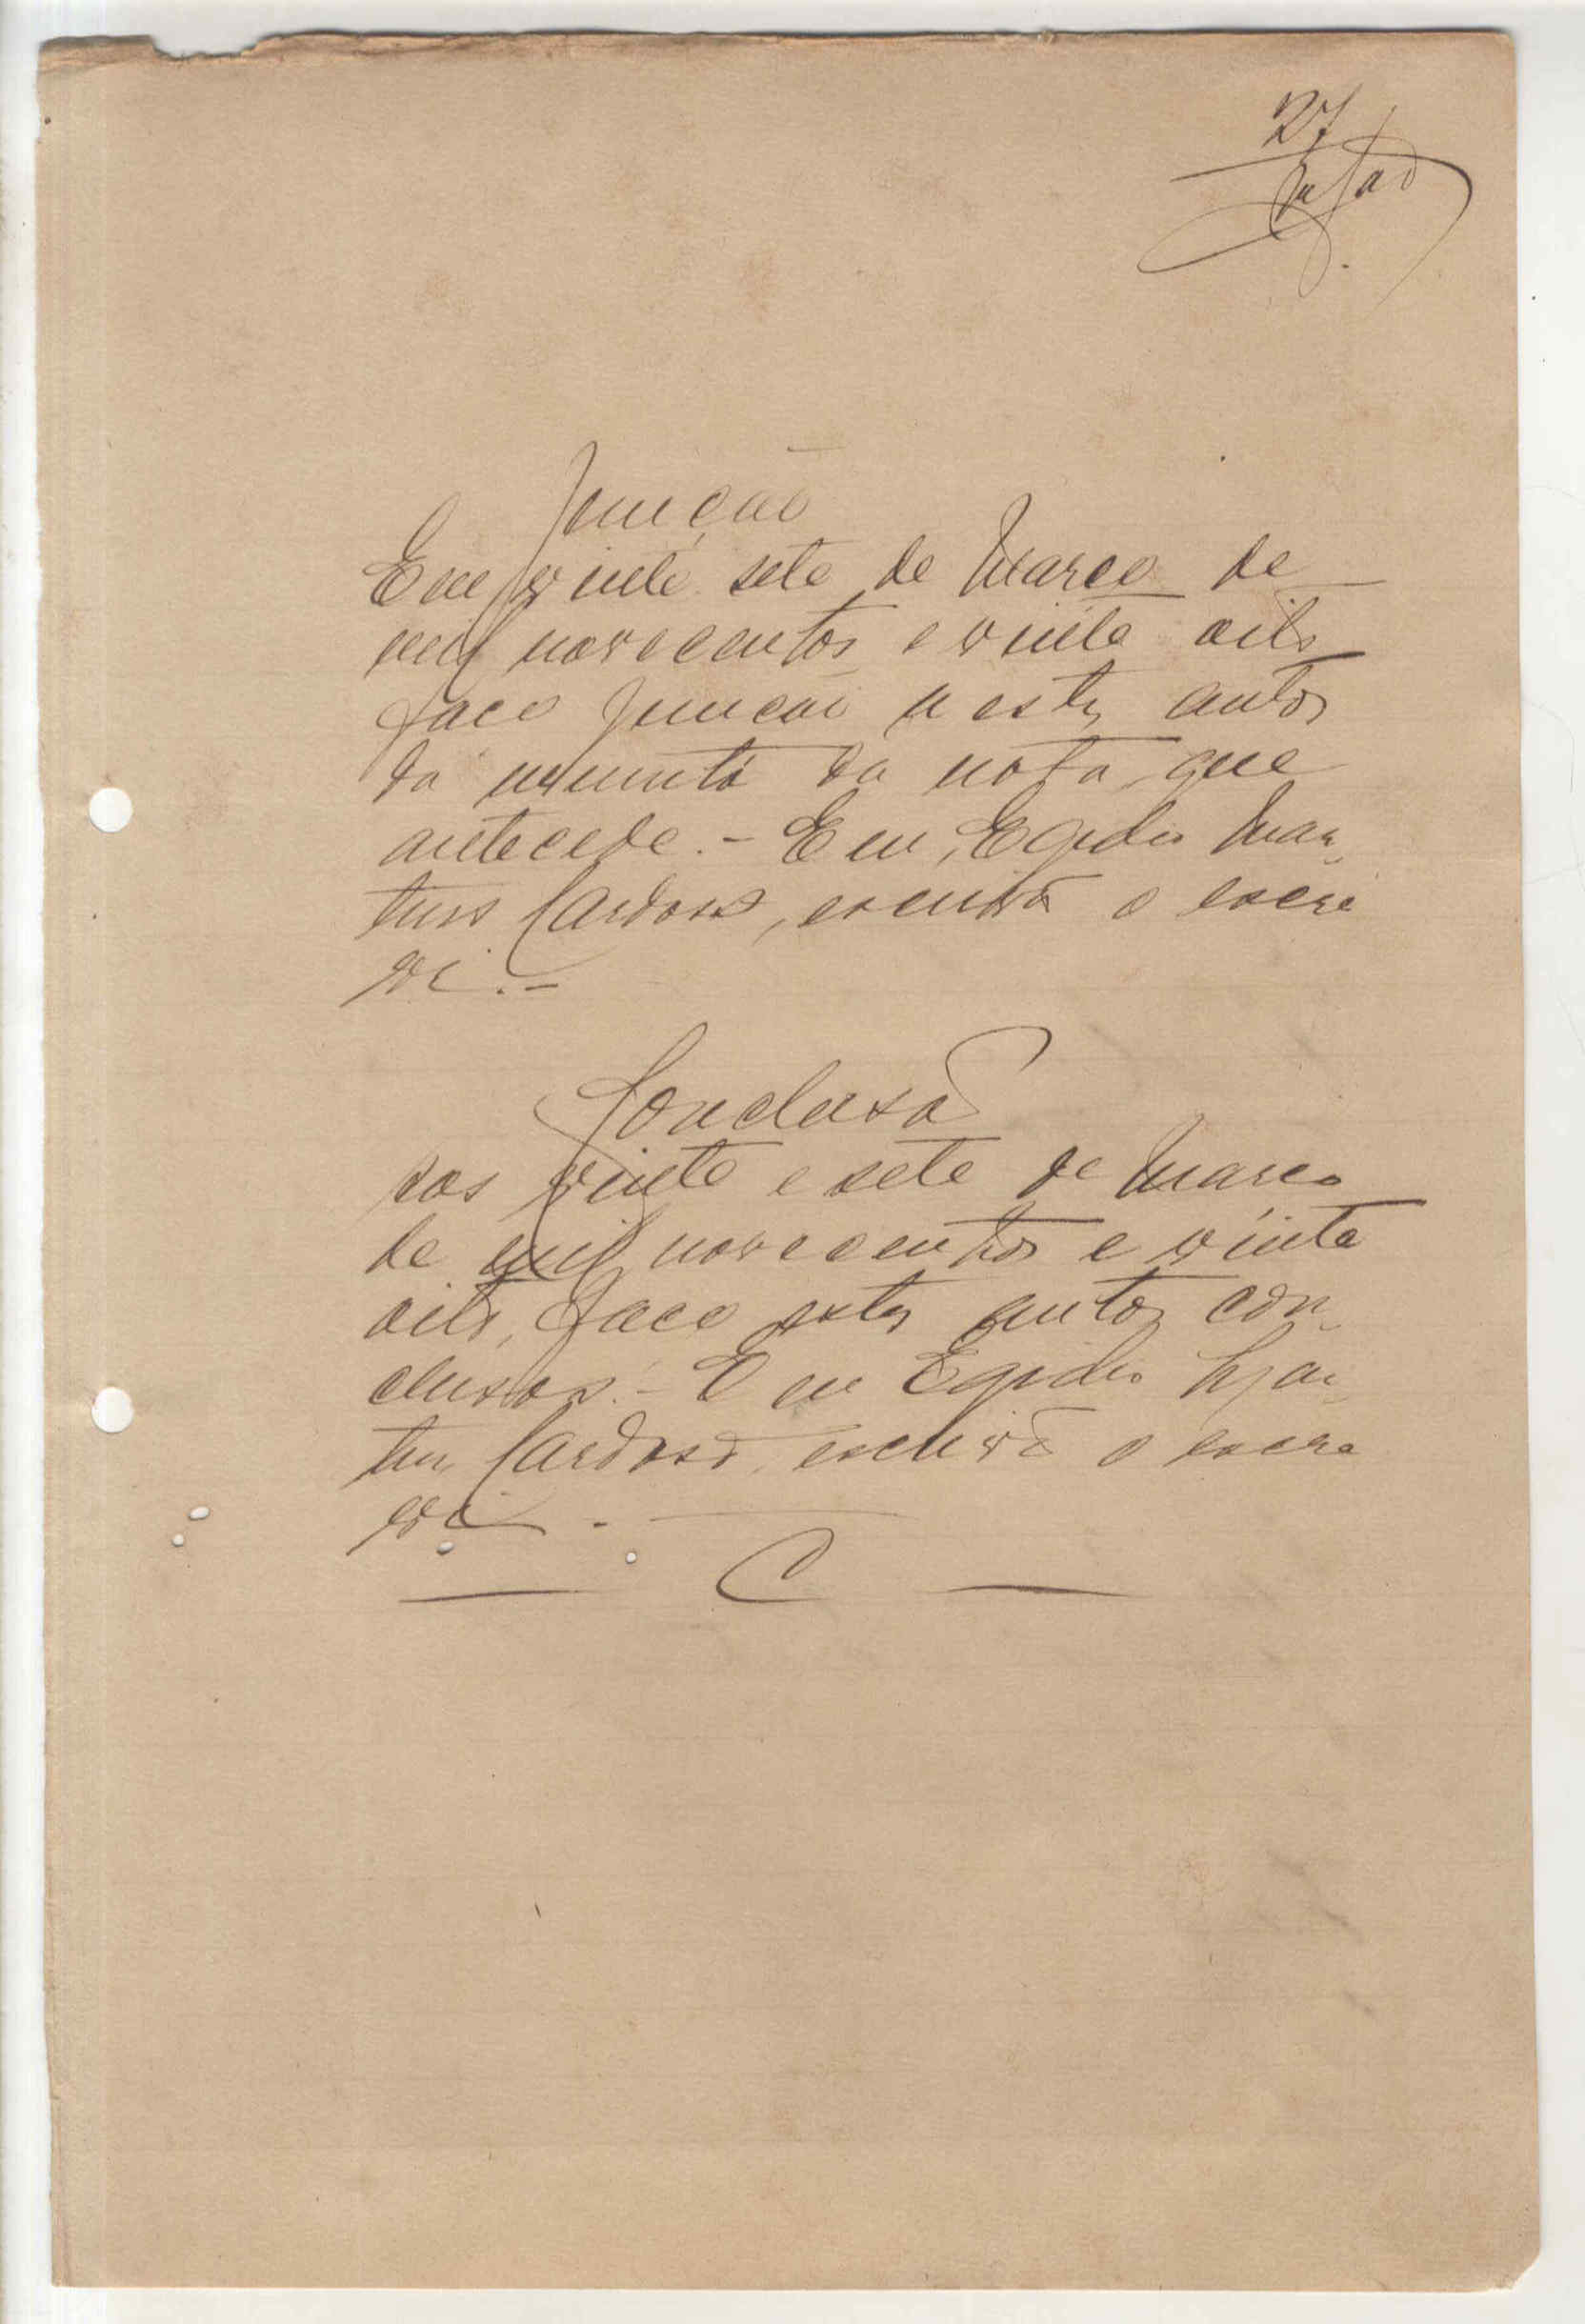 27
Junção
Em vinte sete de Março de
mil novecentos e vinte oito
faço junção a estes autos
da minuta da nota que
antecede. - E eu, Egidio Mar
tins Cardoso, escrivão o escre
vi. -
Conclusão
Aos vinte e sete de Março
de mil novecentos e vinte
oito, faço estes autos con
clusos. - E eu Egidio Mar
tins Cardoso, escrivão o escre
vi. -